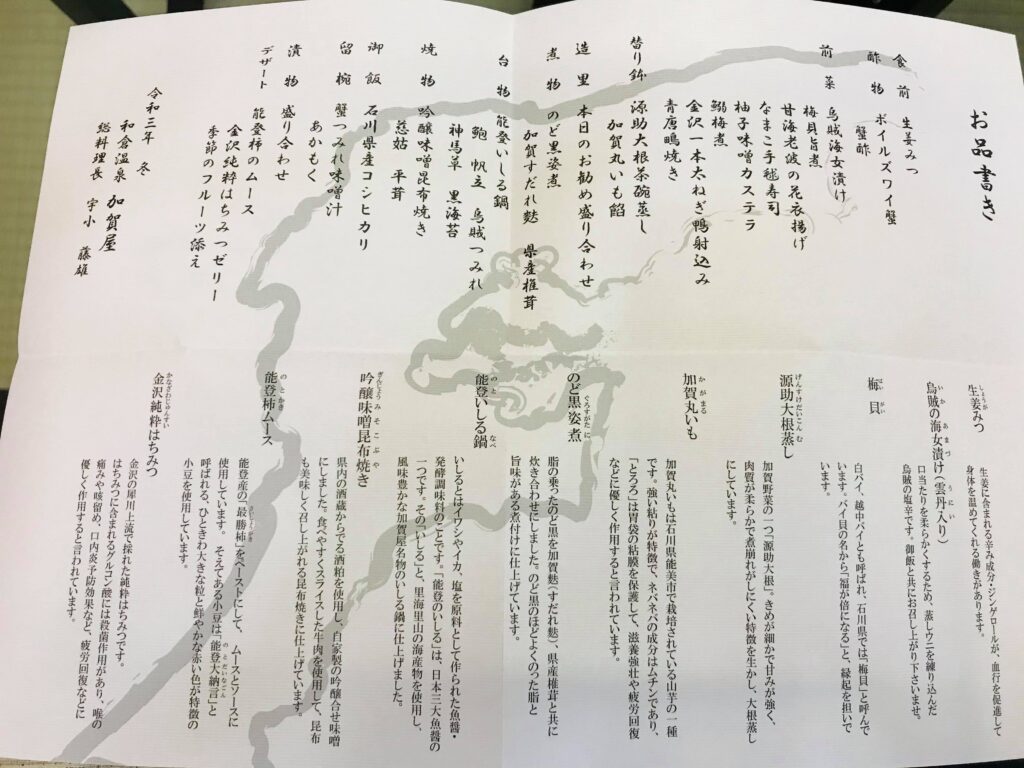 お品書き
食前 生姜みつ
酢物 ボイルズワイ蟹
蟹酢
前菜 烏賊海女漬け
梅貝旨煮
甘海老彼の花衣揚げ
なまこ手毬寿司
柚子味噌カステラ
金沢一本太ねぎ鴨射込み
鰯梅煮
青唐鴫焼き
替り鉢 源助大根茶碗蒸し
加賀丸いも餡
造里 本日のお勧め盛り合わせ
煮物 のど黒姿煮
加賀すだれ麩 県産椎茸
台物 能登いしる鍋
鮑 帆立 烏賊つみれ
神馬草 黒海苔
慈姑 平茸
焼物 吟醸味噌昆布焼き
御飯 石川県産コシヒカリ
留椀 蟹つみれ味噌汁
あかもく
漬物 盛り合わせ
デザート 能登柿のムース
金沢純粋はちみつゼリー
季節のフルーツ添え
令和三年 冬
和倉温泉 加賀屋
総料理長 宇小 藤雄
生姜みつ
しょうが
生姜に含まれる辛み成分・ジンゲロールが、血行を促進して
身体を温めてくれる働きがあります。
烏賊の海女漬け(雲丹入り)
いか あまづ うにい
口当たりを柔らかくするため、蒸しウニを練り込んだ
烏賊の塩辛です。御飯と共にお召し上がり下さいませ。
梅貝
ばいがい
白バイ、越中バイとも呼ばれ、石川県では「梅貝」と呼んで
います。バイ貝の名から「福が倍になる」と、縁起を担いで
います。
源助大根蒸し
げんすけだいこんむ
加賀野菜の一つ「源助大根」。きめが細かで甘みが強く、
肉質が柔らかで煮崩れがしにくい特徴を生かし、大根蒸し
にしています。
加賀丸いも
かがまる
加賀丸いもは石川県能美市で栽培されている山芋の一種
です。強い粘りが特徴で、ネバネバの成分はムチンであり、
「とろろ」は胃袋の粘膜を保護して、滋養強壮や疲労回復
などに優しく作用すると言われています。
のど黒姿煮
ぐろすがたに
脂の乗ったのど黒を加賀麩(すだれ麩)、県産椎茸と共に
炊き合わせにしました。のど黒のほどよくのった脂と
旨味がある煮付けに仕上げています。
能登いしる鍋
のと なべ
いしるとはイワシやイカ、塩を原料として作られた魚醤・
発酵調味料のことです。「能登のいしる」は、日本三大魚醤の
一つです。その「いしる」と、里海里山の海産物を使用し、
風味豊かな加賀屋名物のいしる鍋に仕上げました。
吟醸味噌昆布焼き
ぎんじょうみそこぶや
県内の酒蔵からでる酒粕を使用し、自家製の吟醸合せ味噌
にしました。食べやすくスライスした牛肉を使用して、昆布
も美味しく召し上がれる昆布焼きに仕上げています。
能登柿ムース
のとがき
能登産の「最勝柿」をペーストにして、ムースとソースに
さいしょうがき
使用しています。そえてある小豆は、「能登大納言」と
のとだいなごん
呼ばれる、ひときわ大きな粒と鮮やかな赤い色が特徴の
小豆を使用しています。
金沢純粋はちみつ
かなざわじゅんすい
金沢の犀川上流で採れた純粋はちみつです。
はちみつに含まれるグルコン酸には殺菌作用があり、喉の
痛みや咳留め、口内炎予防効果など、疲労回復などに
優しく作用すると言われています。